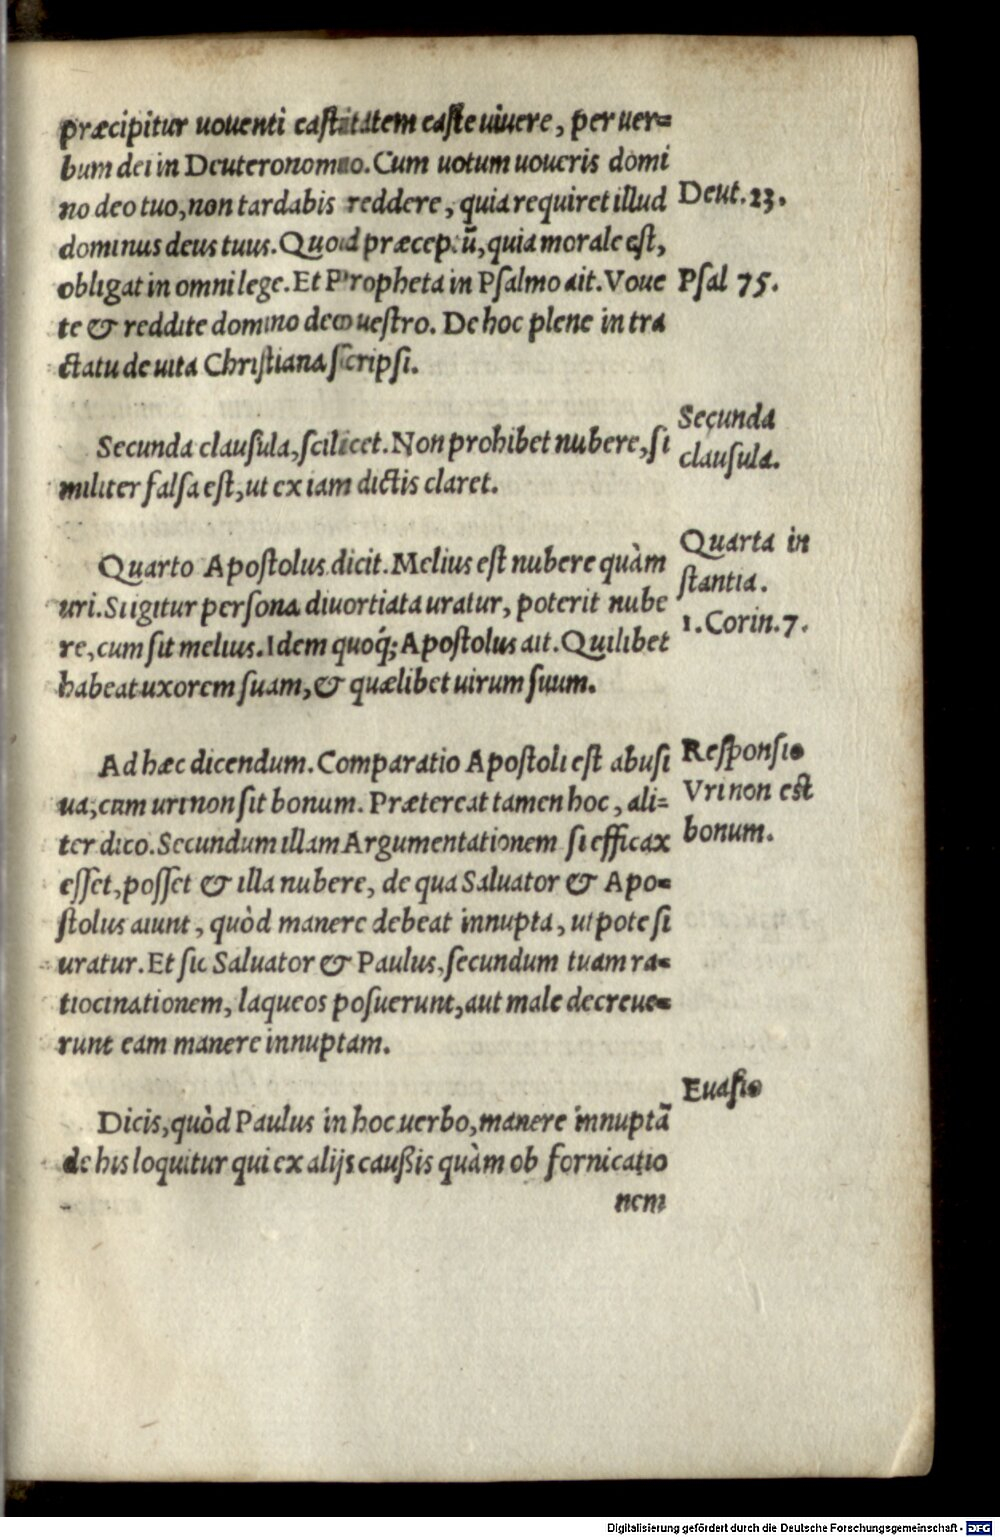 præcipitur uouenti castitatem caste uiuere, per uer=
bum dei in Deuteronomio. Cum uotum uoueris domi
no deo tuo, non tardabis reddere, quia requiret illud
Deut. 23.
dominus deus tuus. Quod præceptū, quia morale est,
obligat in omni lege. Et Propheta in Psalmo ait. Voue
Psal 75.
te & reddite domino deo uestro. De hoc plene in tra
ctatu de uita Christiana scripsi.
Secunda clausula, scilicet. Non prohibet nubere, si
Secunda
clausula.
militer falsa est, ut ex iam dictis claret.
Quarto Apostolus dicit. Melius est nubere quàm
Quarta in
stantia.
uri. Si igitur persona diuortiata uratur, poterit nube
1. Corin. 7.
re, cum sit melius. Idem quoq́; Apostolus ait. Quilibet
habeat uxorem suam, & quælibet uirum suum.
Ad hæc dicendum. Comparatio Apostoli est abusi
Responsio
ua, cum uri non sit bonum. Prætereat tamen hoc, ali=
Vri non est
bonum.
ter dico. Secundum illam Argumentationem si efficax
esset, posset & illa nubere, de qua Saluator & Apo=
stolus aiunt, quòd manere debeat innupta, utpote si
uratur. Et sic Saluator & Paulus, secundum tuam ra=
tiocinationem, laqueos posuerunt, aut male decreue=
runt eam manere innuptam.
Dicis, quòd Paulus in hoc uerbo, manere innuptā
Euasio
de his loquitur qui ex alijs caußis quàm ob fornicatio
nem
Digitalisierung gefördert durch die Deutsche Forschungsgemeinschaft - DFG